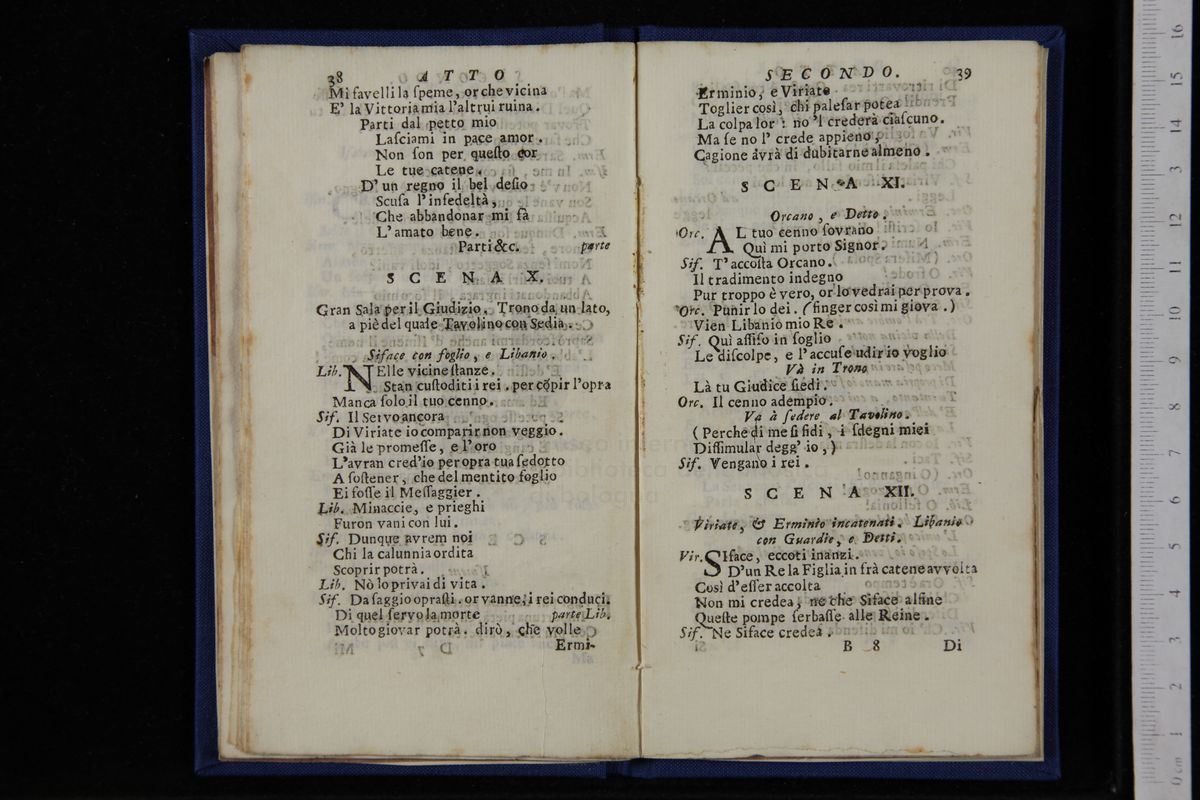 38 ATTO
Mi favelli la ſpeme, or che vicina
E' la Vittoria mia l'altrui ruina.
Parti dal petto mio
Laſciami in pace amor.
Non ſon per queſto cor
Le tue catene.
D'un regno il bel deſio
Scuſa l'infedeltà,
Che abbandonar mi fà
L'amato bene.
Parti &c. parte
SCENA X.
Gran Sala per il Giudizio. Trono da un lato,
a piè del quale Tavolino con Sedia.
Siface con foglio, e Libanio.
Lib. NElle vicine ſtanze.
Stan cuſtoditi i rei. per copir l'opra
Manca ſolo il tuo cenno.
Sif. Il Servo ancora
Di Viriate io comparir non veggio.
Già le promeſſe, e l'oro
L'avran cred'io per opra tua ſedotto
A ſoſtener, che del mentito foglio
Ei foſſe il Meſſaggier.
Lib. Minaccie, e prieghi
Furon vani con lui.
Sif. Dunque avrem noi
Chi la calunnia ordita
Scoprir potrà.
Lib. Nò lo privai di vita.
Sif. Da ſaggio opraſti. or vanne, i rei conduci.
Di quel ſervo la morte parte Lib.
Molto giovar potrà. dirò, che volle
Ermi-
SECONDO. 39
Erminio, e Viriate
Toglier così, chi paleſar potea
La colpa lor: no 'l crederà ciaſcuno.
Ma ſe no l' crede appieno,
Cagione avrà di dubitarne almeno.
SCENA XI.
Orcano, e Detto.
Orc. AL tuo cenno ſovrano
Quì mi porto Signor.
Sif. T'accoſta Orcano.
Il tradimento indegno
Pur troppo è vero, or lo vedrai per prova.
Orc. Punir lo dei. (finger così mi giova.)
Vien Libanio mio Re.
Sif. Quì aſſiſo in ſoglio
Le diſcolpe, e l'accuſe udir io voglio
Và in Trono
Là tu Giudice ſiedi.
Orc. Il cenno adempio.
Va à ſedere al Tavolino.
(Perche di me ſi fidi, i ſdegni miei
Diſſimular degg' io,)
Sif. Vengano i rei.
SCENA XII.
Viriate, & Erminio incatenati. Libanio
con Guardie, e Detti.
Vir. SIface, eccoti inanzi.
D'un Re la Figlia in frà catene avvolta
Così d'eſſer accolta
Non mi credea, ne che Siface alfine
Queſte pompe ſerbaſſe alle Reine.
Sif. Ne Siface credea.
B 8 Di